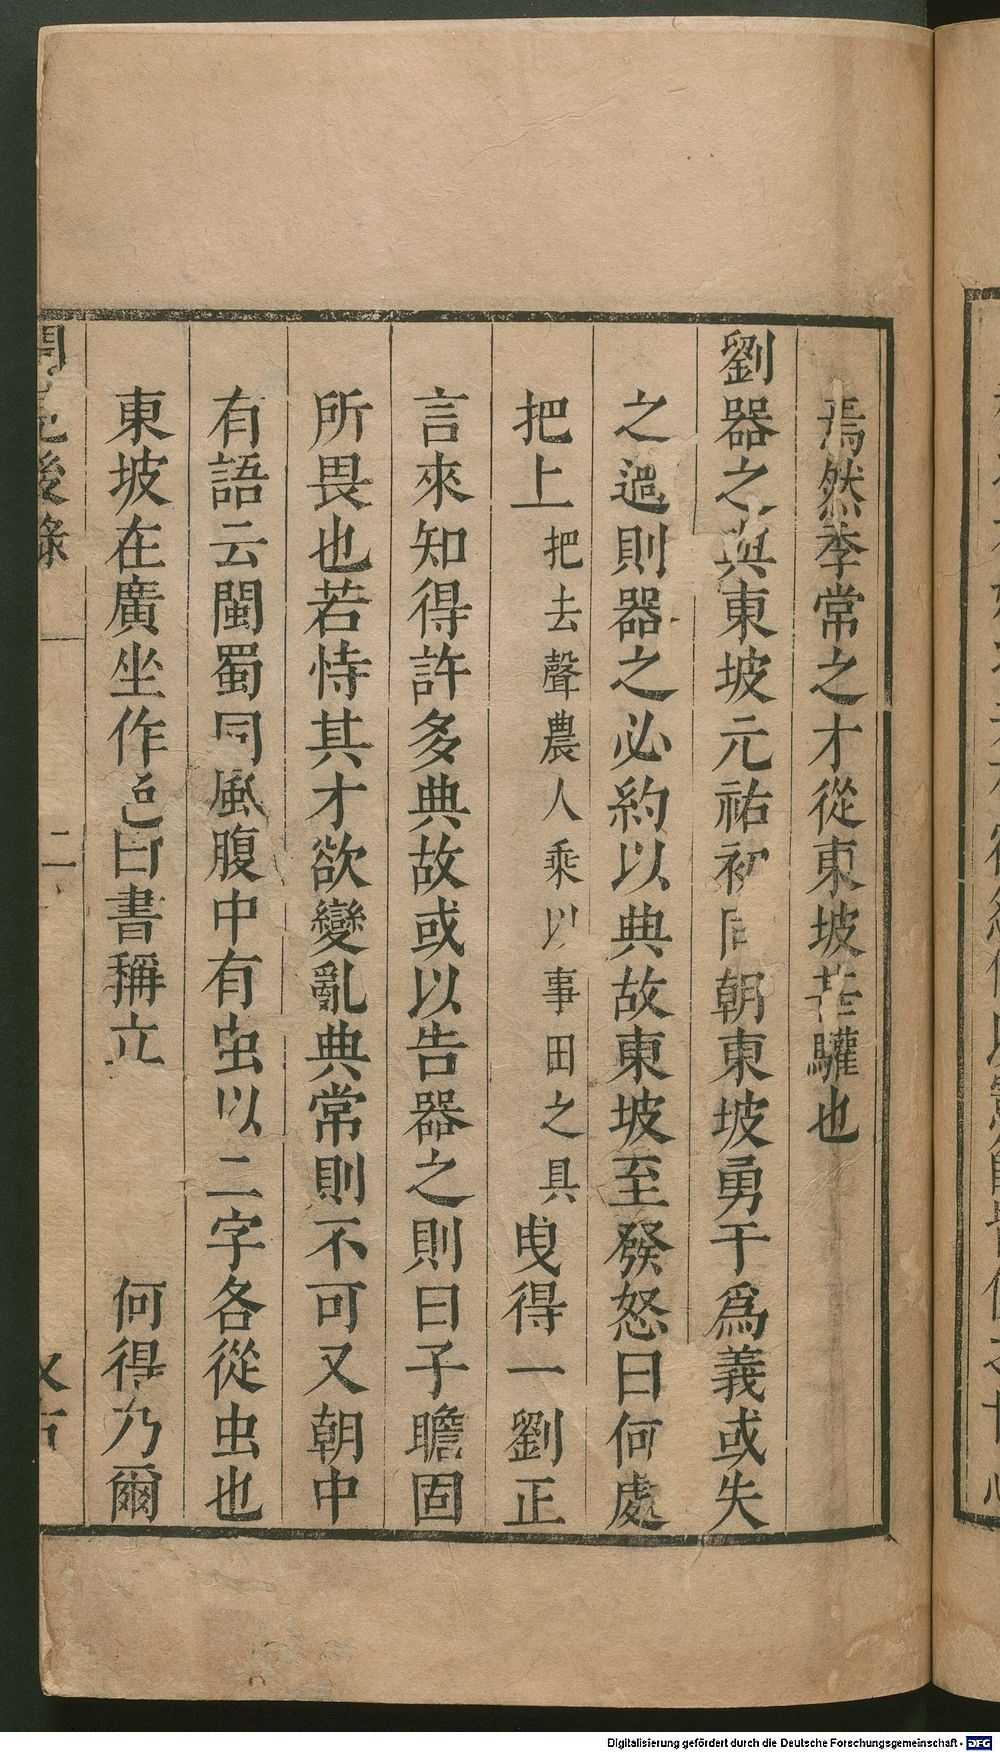 焉然季常之才從東坡𦬊驩也
劉器之與東坡元祐初同朝東坡勇于爲義或失
之過則器之必約以典故東坡至發怒曰何處
把上把去聲農人乘以事田之具曳得一劉正
言來知得許多典故或以告器之則曰子瞻固
所畏也若恃其才欲變亂典常則不可又朝中
有語云閩蜀同風腹中有虫以二字各從虫也
東坡在廣坐作色曰書稱立 何得乃爾
聞見後錄
二
Digitalisierung gefördert durch die Deutsche Forschungsgemeinschaft - DFG